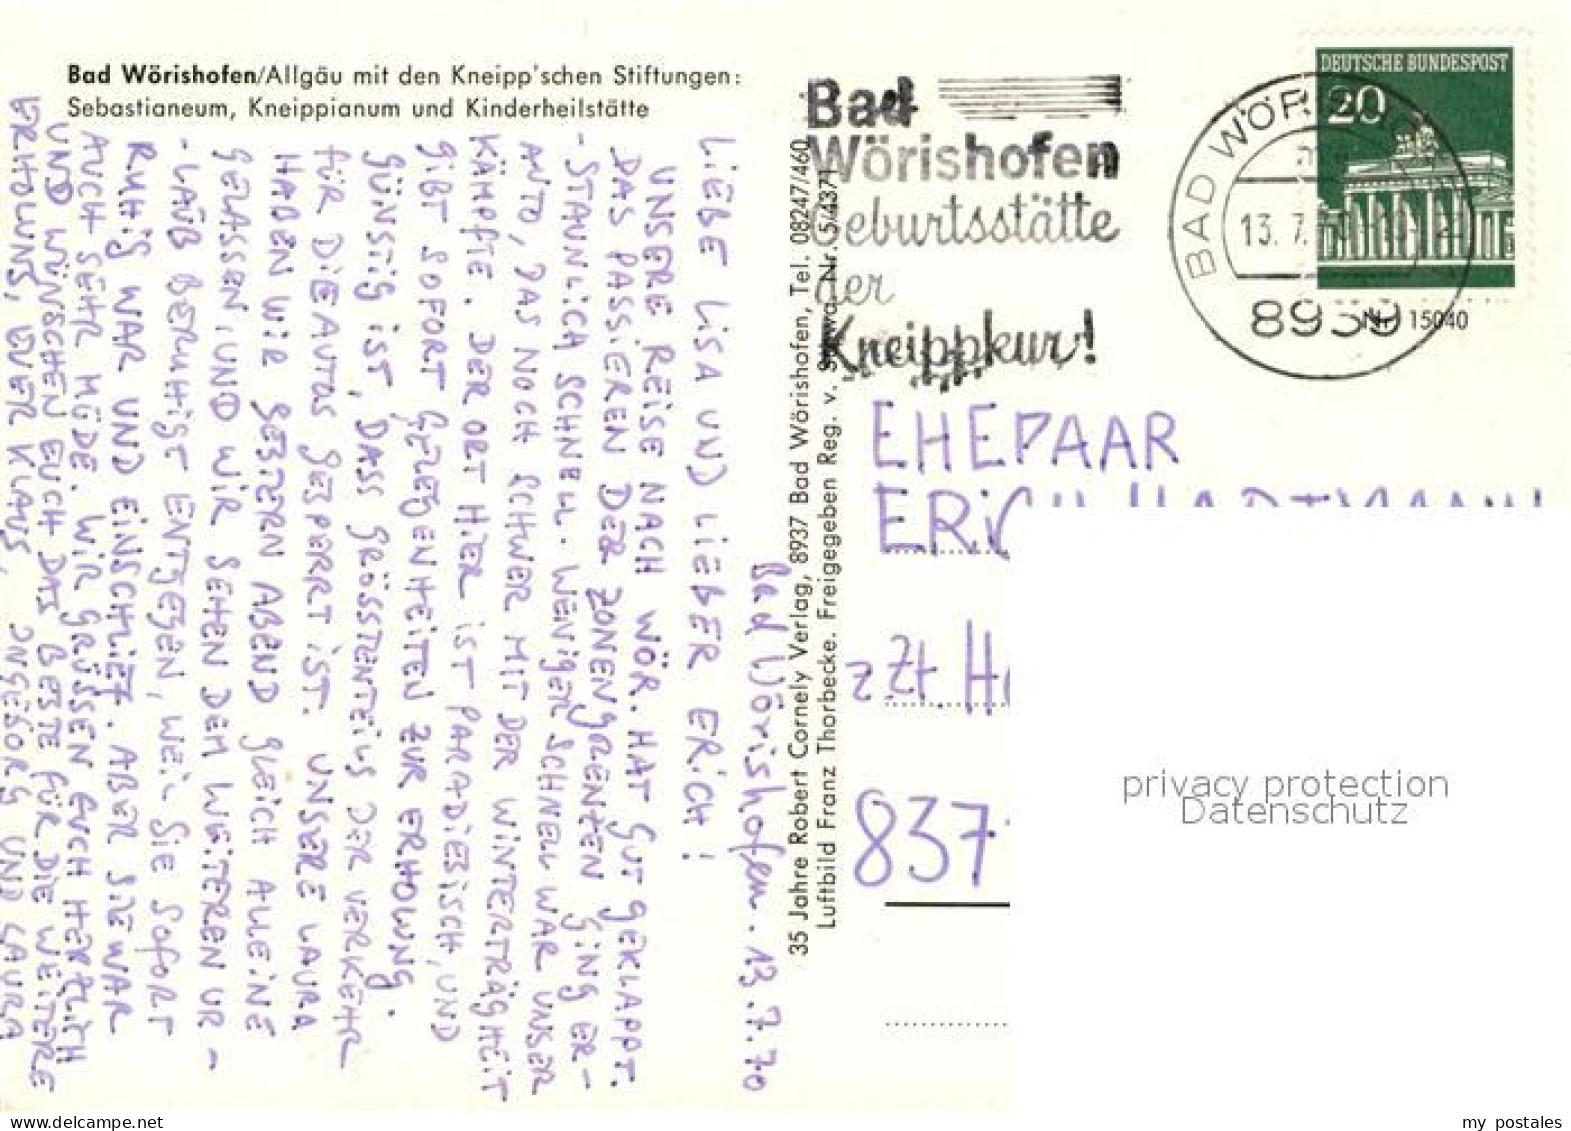 Bad Wörishofen/Allgäu mit den Kneipp'schen Stiftungen:
Sebastianeum, Kneippianum und Kinderheilstätte
Bad Wörishofen. 13.7.70
LIEBE LISA UND LIEBER ERICH!
UNSERE REISE NACH WÖR. HAT GUT GEKLAPPT.
DAS PASSIEREN DER ZONENGRENZEN GING ER-
-STAUNLICH SCHNELL. WENIGER SCHNELL WAR UNSER
AUTO, DAS NOCH SCHWER MIT DER WINTERTRÄGHEIT
KÄMPFTE. DER ORT HIER IST PARADIESISCH, UND
GIBT SOFORT GELEGENHEITEN ZUR ERHOLUNG.
GÜNSTIG IST, DASS GRÖSSTENTEILS DER VERKEHR
FÜR DIE AUTOS GESPERRT IST. UNSERE LAURA
HABEN WIR GESTERN ABEND GLEICH ALLEINE
GELASSEN, UND WIR SEHEN DEM WEITEREN UR-
-LAUB BERUHIGT ENTGEGEN, WEIL SIE SOFORT
RUHIG WAR UND EINSCHLIEF. ABER SIE WAR
AUCH SEHR MÜDE. WIR GRÜSSEN EUCH HERZLICH
UND WÜNSCHEN EUCH DAS BESTE FÜR DIE WEITERE
ERHOLUNG, EUER KLAUS, INGEBORG UND LAURA
35 Jahre Robert Cornely Verlag, 8937 Bad Wörishofen, Tel. 08247/460
Luftbild Franz Thorbecke. Freigegeben Reg. v. Nr. 5/4371
Bad
Wörishofen
Geburtsstätte
der
Kneippkur!
DEUTSCHE BUNDESPOST
20
BAD WÖR
13. 7.
8939
Nr. 15040
EHEPAAR
ERICH HARTMANN
z.Zt. H
837
privacy protection
Datenschutz
www.delcampe.net
my_postales